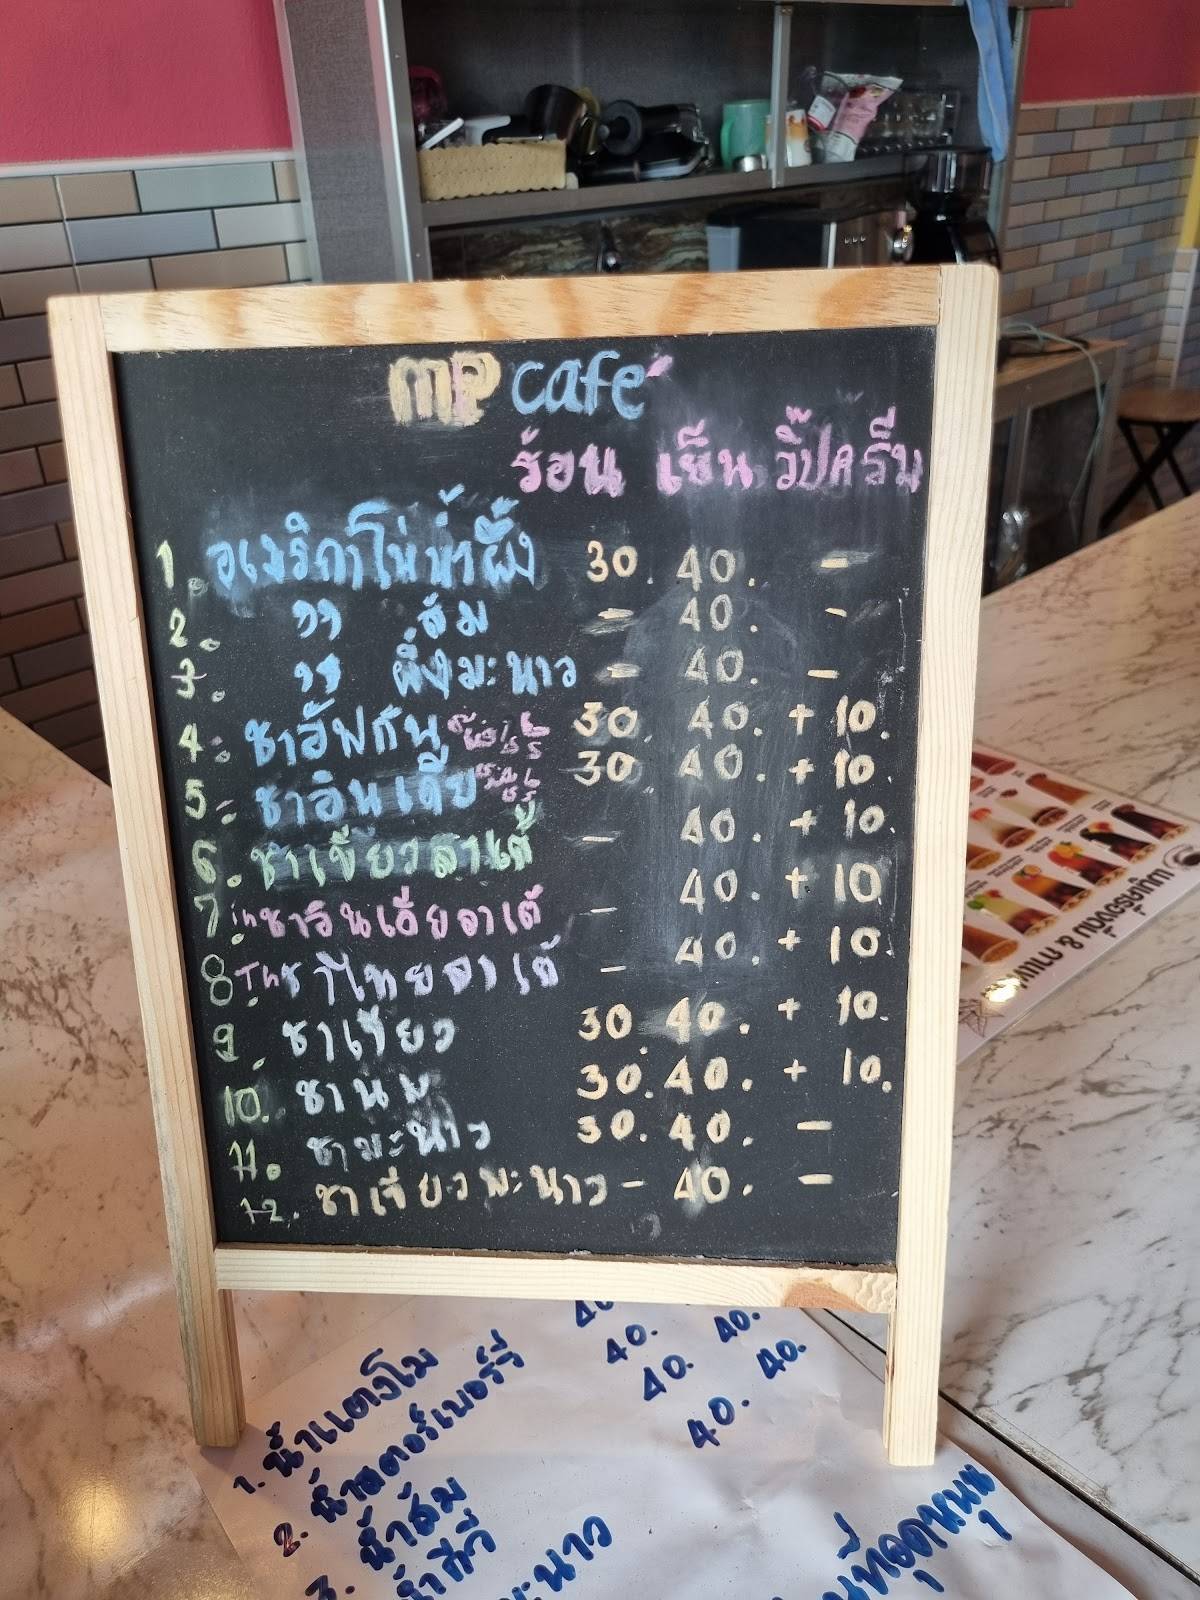 mp cafe
ร้อน เย็น วิ๊ปครีม
1. อเมริกาโน่น้ำผึ้ง 30. 40. -
2. " ส้ม - 40. -
3. " ผึ้งมะนาว - 40. -
4. ชาอัฟกัน 30. 40. + 10.
5. ชาอินเดีย 30 40. + 10.
6. ชาเขียวลาเต้ - 40. + 10.
7. in ชาอินเดียลาเต้ - 40. + 10
8. Th ชาไทยลาเต้ - 40. + 10.
9. ชาเขียว 30 40. + 10.
10. ชานม 30. 40. + 10.
11. ชามะนาว 30. 40. -
12. ชาเขียวมะนาว - 40. -
1. น้ำแตงโม 40. 40.
2. น้ำสตอร์เบอร์รี่ 40. 40.
3. น้ำส้ม 40. 40.
น้ำกีวี่
ะนาว
ที่อุดหนุน